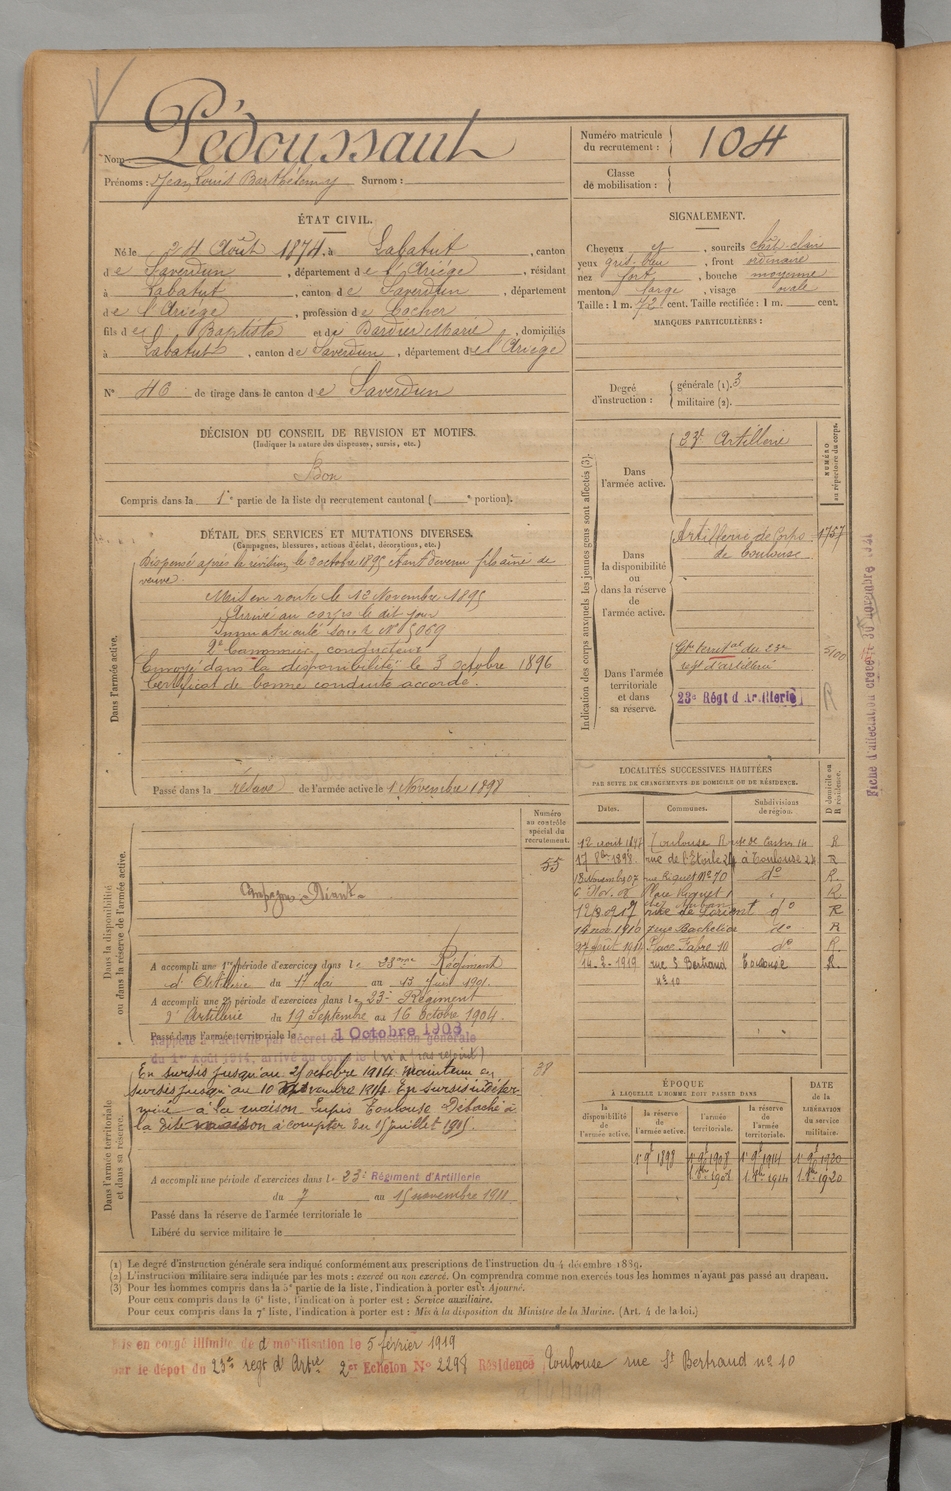 Nom Pédoussaut
Prénoms : Jean Louis Barthélemy Surnom :
Numéro matricule du recrutement : 104
Classe de mobilisation :
ÉTAT CIVIL.
Né le 24 Août 1874, à Labatut, canton
de Saverdun, département de l'Ariége, résidant
à Labatut, canton de Saverdun, département
de l'Ariège, profession de Cocher
fils de Baptiste et de Bardier Marie, domiciliés
à Labatut, canton de Saverdun, département de l'Ariége
N° 46 de tirage dans le canton de Saverdun
DÉCISION DU CONSEIL DE REVISION ET MOTIFS.
(Indiquer la nature des dispenses, sursis, etc.)
Bon
Compris dans la 1re partie de la liste du recrutement cantonal ( e portion).
SIGNALEMENT.
Cheveux et, sourcils chât-clair
yeux gris-bleu, front ordinaire
nez fort, bouche moyenne
menton large, visage ovale
Taille : 1 m. 72 cent. Taille rectifiée : 1 m. cent.
MARQUES PARTICULIÈRES :
Degré d'instruction : générale (1). 3
militaire (2).
DÉTAIL DES SERVICES ET MUTATIONS DIVERSES.
(Campagnes, blessures, actions d'éclat, décorations, etc.)
Dans l'armée active.
Dispensé après la révision, le 3 octobre 1895 étant devenu fils aîné de
veuve.
Mis en route le 12 Novembre 1895
Arrivé au corps le dit jour
Immatriculé sous le N° 15069
2e Canonnier conducteur
Envoyé dans la disponibilité le 3 octobre 1896
Certificat de bonne conduite accordé.
Passé dans la réserve de l'armée active le 1 Novembre 1898
Indication des corps auxquels les jeunes gens sont affectés (3).
NUMÉRO au répertoire du corps.
Dans l'armée active.
23e Artillerie
Dans la disponibilité ou dans la réserve de l'armée active.
Artillerie de Corps 1757
de Toulouse
Dans l'armée territoriale et dans sa réserve.
Gr territal du 23e 5100
regt d'artillerie
23e Régt d'Artillerie R
Fiche d'affectation 30 novembre
Numéro au contrôle spécial du recrutement.
55
Dans la disponibilité ou dans la réserve de l'armée active.
Campagnes : Néant
A accompli une 1re période d'exercices dans le 23ème Régiment
d'Artillerie du 17 Mai au 13 Juin 1901.
A accompli une 2e période d'exercices dans le 23e Régiment
d'Artillerie du 19 Septembre au 16 Octobre 1904.
Passé dans l'armée territoriale le 1 Octobre 1908
Rappelé à l'activité par décret de mobilisation générale
du 1er Août 1914, arrivé au corps le (n'a pas rejoint)
Dans l'armée territoriale et dans sa réserve.
38
En sursis jusqu'au 31 octobre 1914. Maintenu en
sursis jusqu'au 10 novembre 1914. En sursis indéter-
miné à la maison Toulouse. Détaché à
la dite maison à compter du 15 juillet 1915.
A accompli une période d'exercices dans le 23e Régiment d'Artillerie
du 7 au 15 novembre 1911
Passé dans la réserve de l'armée territoriale le
Libéré du service militaire le
LOCALITÉS SUCCESSIVES HABITÉES
PAR SUITE DE CHANGEMENTS DE DOMICILE OU DE RÉSIDENCE.
D domicile ou R résidence.
Dates. Communes. Subdivisions de région.
12 août 1897 Toulouse Rte de Castres 14 R
17 8bre 1898 rue de l'Etoile 24 à Toulouse R
18 Novemb 07 rue Riquet N° 70 do R.
6 Nov. 08 Place Riquet 1 R
rue de Lorient do R
14 nov. 1910 7 rue Bachelier do R
27 août Place Fabre 10 do R.
14-3-1919 rue St Bertrand Toulouse R.
n° 10
ÉPOQUE
À LAQUELLE L'HOMME DOIT PASSER DANS
DATE de la LIBÉRATION du service militaire.
la disponibilité de l'armée active. la réserve de l'armée active. l'armée territoriale. la réserve de l'armée territoriale.
1er 9bre 1898 1er 9bre 1908 1er 9bre 1914 1er 9bre 1920
1. 8bre 1908 1. 8bre 1914 1. 8bre 1920
(1) Le degré d'instruction générale sera indiqué conformément aux prescriptions de l'instruction du 4 décembre 1889.
(2) L'instruction militaire sera indiquée par les mots : exercé ou non exercé. On comprendra comme non exercés tous les hommes n'ayant pas passé au drapeau.
(3) Pour les hommes compris dans la 5e partie de la liste, l'indication à porter est : Ajourné.
Pour ceux compris dans la 6e liste, l'indication à porter est : Service auxiliaire.
Pour ceux compris dans la 7e liste, l'indication à porter est : Mis à la disposition du Ministre de la Marine. (Art. 4 de la loi.)
Mis en congé illimité de démobilisation le 5 février 1919
par le dépôt du 23e regt d'Artie 2e Echelon N° 2298 Résidence Toulouse rue St Bertrand n° 10